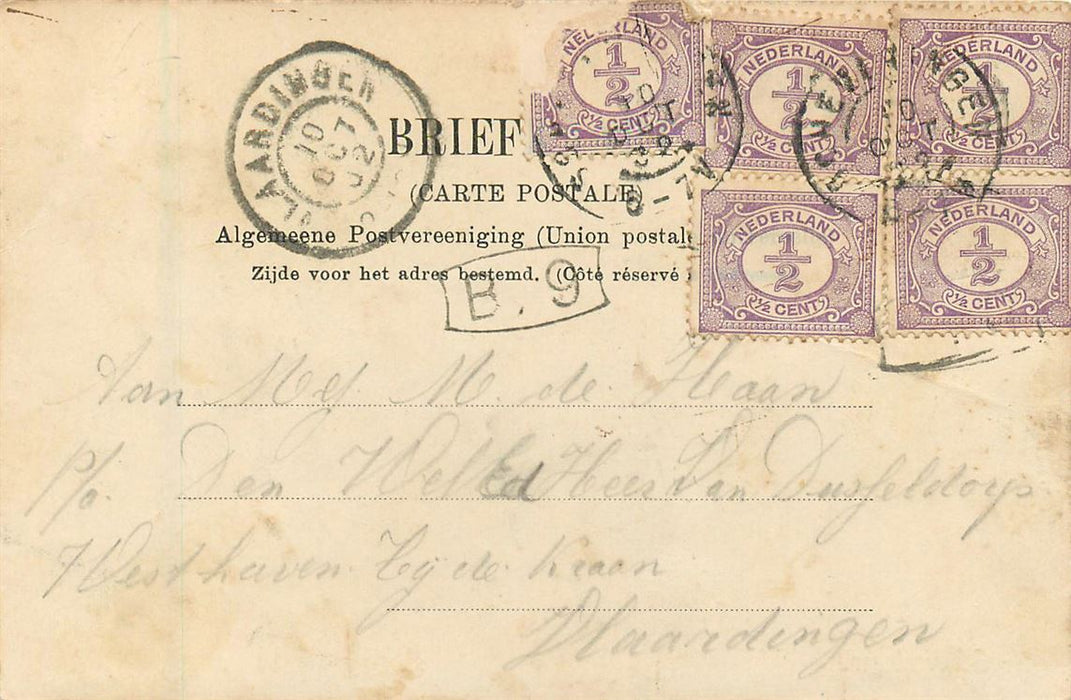 NEDERLAND 1/2 ½ CENT
NEDERLAND 1/2 ½ CENT
NEDERLAND 1/2 ½ CENT
NEDERLAND 1/2 ½ CENT
NEDERLAND 1/2 ½ CENT
VLAARDINGEN
10 OCT 02
BRIEF
(CARTE POSTALE)
Algemeene Postvereeniging (Union postale
Zijde voor het adres bestemd. (Côté réservé
B. 9
Aan Mej M. de Haan
p/o. Den WelEd Heer Van Dusseldorp
Westhaven bij de Kraan
Vlaardingen